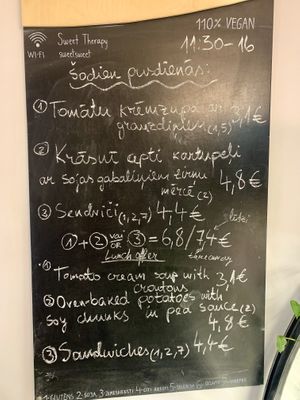 Sweet Therapy
sweetsweet
WI-FI
110% VEGAN
11:30-16
Šodien pusdienās:
① Tomātu krēmzupa ar 3,1€
grauzdiņiem (1,5)
② Krāsnī cepti kartupeļi
ar sojas gabaliņiem zirņu
mērcē (2) 4,8€
③ Sendviči (1,2,7) 4,4€
①+② vai
OR ③ = 6,8/7,4€
Lunch offer
takeaway
① Tomato cream soup with 3,1€
croutons
② Oven-baked potatoes with
soy chunks in pea sauce (2)
4,8€
③ Sandwiches (1,2,7) 4,4€